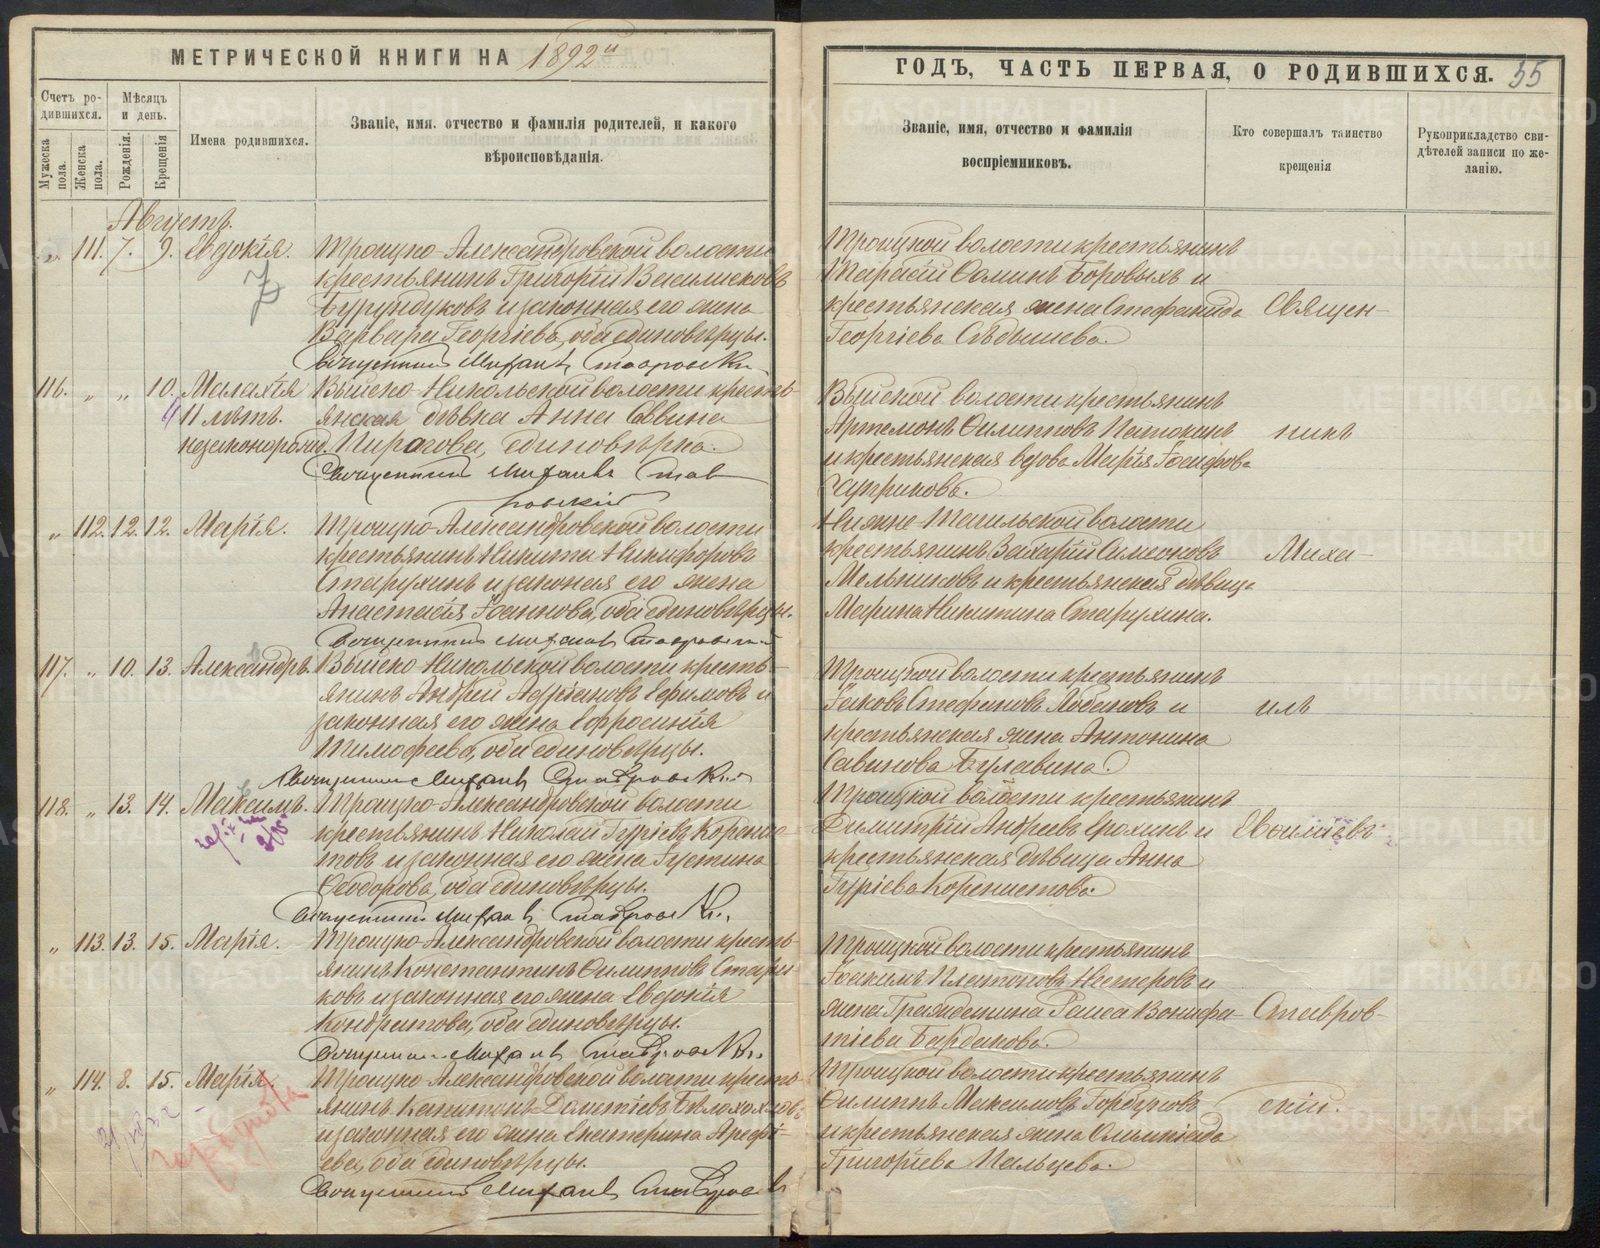 МЕТРИЧЕСКОЙ КНИГИ НА 1892й
Счетъ родившихся.
Мѣсяцъ и день.
Имена родившихся.
Званіе, имя, отчество и фамилія родителей, и какого
вѣроисповѣданія.
Мужеска пола.
Женска пола.
Рожденія.
Крещенія
Августъ.
„ 111. 7. 9. Евдокія. Троицко-Александровской волости
крестьянинъ Григорій Василисковъ
Бурундуковъ и законная его жена
Варвара Георгіева, оба единовѣрцы.
Священникъ Михаилъ Ставровскій
116. „ „ 10. Малахія Выйско-Никольской волости кресть-
11 лѣтъ. янская дѣвка Анна Саввина
незаконорожд. Пирогова, единовѣрка.
Священникъ Михаилъ Став
ровскій
„ 112. 12. 12. Марія. Троицко-Александровской волости
крестьянинъ Никита Никифоровъ
Старухинъ и законная его жена
Анастасія Іоаннова, оба единовѣрцы.
Священникъ Михаилъ Ставровскій
117. „ 10. 13. Александръ. Выйско-Никольской волости кресть-
янинъ Андрей Адріановъ Ефимовъ и
законная его жена Ефросинія
Тимофеева, оба единовѣрцы.
Священникъ Михаилъ Ставровскій
118. „ 13. 14. Максимъ. Троицко-Александровской волости
крестьянинъ Николай Гуріевъ Коренис-
товъ и законная его жена Густина
Ѳеодорова, оба единовѣрцы.
Священникъ Михаилъ Ставровскій
„ 113. 13. 15. Марія. Троицко-Александровской волости кресть-
янинъ Константинъ Филипповъ Стари-
ковъ и законная его жена Евдокія
Кондратова, оба единовѣрцы.
Священникъ Михаилъ Ставровскій
„ 114. 8. 15. Марія. Троицко-Александровской волости кресть-
янинъ Капитонъ Дометіевъ Бѣлохоховъ
и законная его жена Екатерина Арефі-
ева, оба единовѣрцы.
Священникъ Михаилъ Ставровскій
ГОДЪ, ЧАСТЬ ПЕРВАЯ, О РОДИВШИХСЯ. 55
Званіе, имя, отчество и фамилія
воспріемниковъ.
Кто совершалъ таинство
крещенія
Рукоприкладство сви-
дѣтелей записи по же-
ланію.
Троицкой волости крестьянинъ
Тарасій Ѳоминъ Боровыхъ и
крестьянская жена Стефанида Священ-
Георгіева Сѣдышева.
Выйской волости крестьянинъ
Артемонъ Филипповъ Патокинъ никъ
и крестьянская вдова Марія Іосифова
Нижне-Тагильской волости
крестьянинъ Захарій Симеоновъ Миха-
Мельниковъ и крестьянская дѣвица
Марина Никитина Старухина.
Троицкой волости крестьянинъ
Іаковъ Стефановъ Лобановъ и илъ
крестьянская жена Антонина
Савинова Булавина.
Троицкой волости крестьянинъ
Димитрій Андреевъ Ерохинъ и Евсиліевъ
крестьянская дѣвица Анна
Гуріева Коренистова.
Троицкой волости крестьянинъ
Іоакимъ Платоновъ Нестеровъ и
жена Гражданина Раиса Вонифа- Ставров-
тіева Бардакова.
Троицкой волости крестьянинъ
Филиппъ Максимовъ Горбуновъ скій.
и крестьянская жена Олимпіада
Григоріева Пальцева.
METRIKI.GASO-URAL.RU